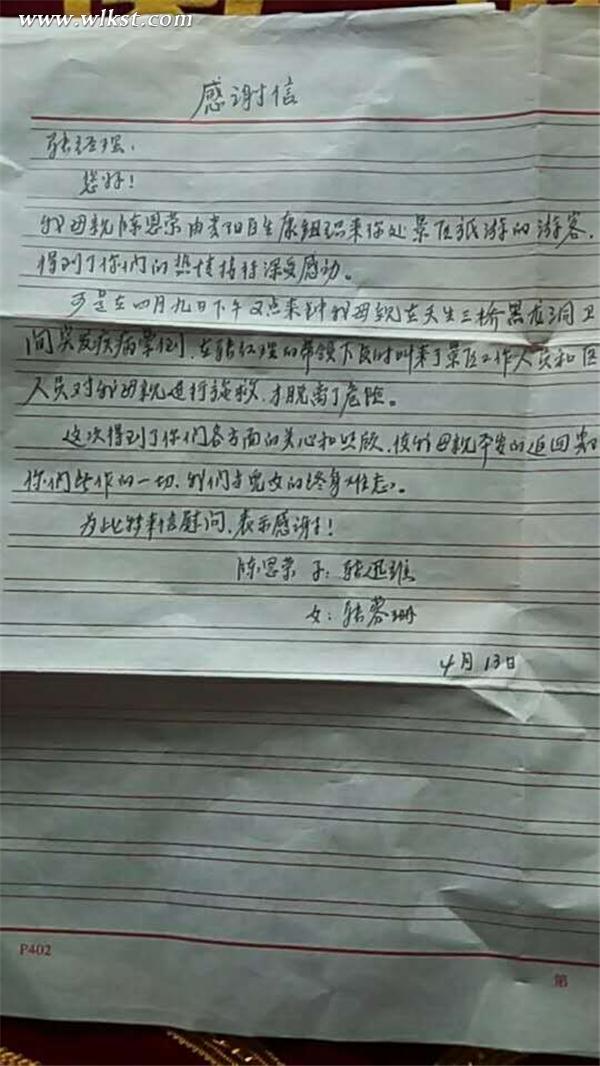 www.wlkst.com
感谢信
张经理：
您好！
我母亲陈思荣由贵阳百生康组织来你处景区旅游的游客，
得到了你们的热情接待深受感动。
可是在四月九日下午2点来钟我母亲在天生三桥黑龙洞卫
间突发疾病晕倒，在张经理的带领下及时叫来了景区工作人员和医
人员对我母亲进行施救，才脱离了危险。
这次得到了你们各方面的关心和照顾，使我母亲平安的返回贵
你们所作的一切，我们当儿女的终身难忘。
为此特来信慰问，表示感谢！
陈思荣 子：张迅
女：张蓉珊
4月13日
P402
第